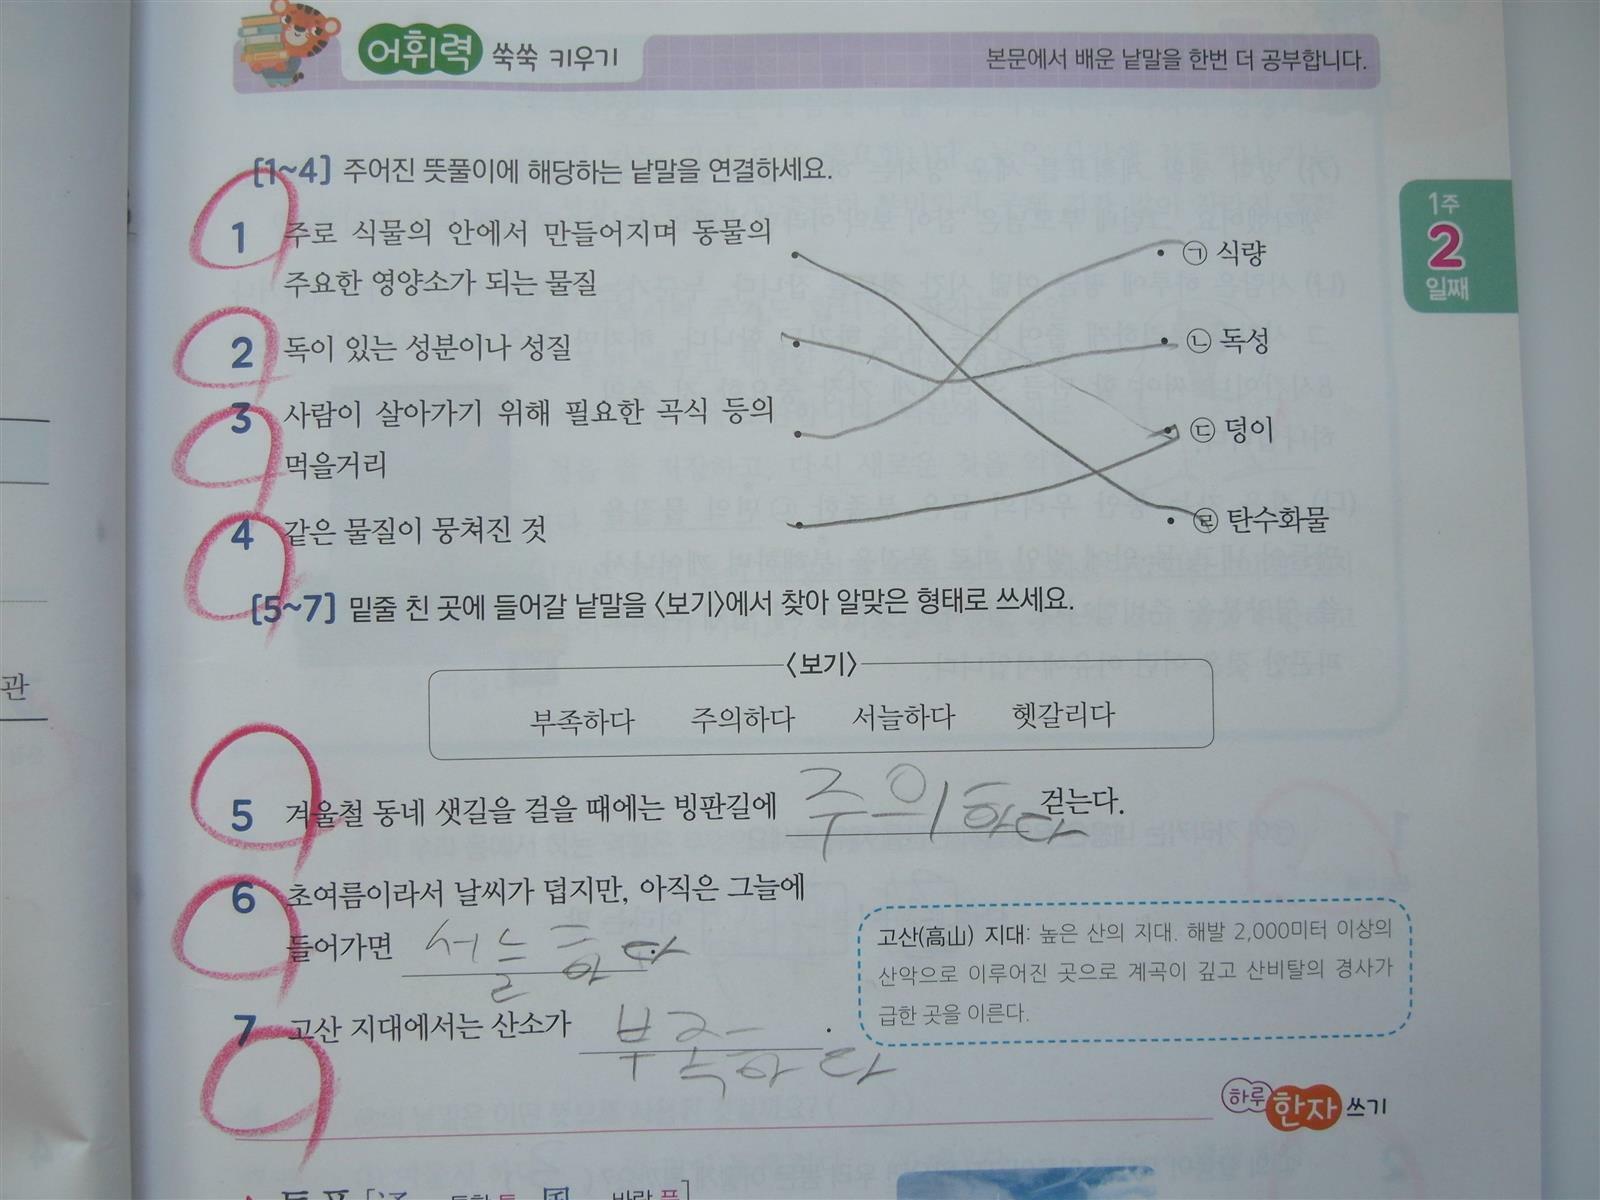 어휘력 쑥쑥 키우기
본문에서 배운 낱말을 한번 더 공부합니다.
[1~4] 주어진 뜻풀이에 해당하는 낱말을 연결하세요.
1주
2
일째
1 주로 식물의 안에서 만들어지며 동물의
주요한 영양소가 되는 물질
㉠ 식량
2 독이 있는 성분이나 성질
㉡ 독성
3 사람이 살아가기 위해 필요한 곡식 등의
먹을거리
㉢ 덩이
4 같은 물질이 뭉쳐진 것
㉣ 탄수화물
[5~7] 밑줄 친 곳에 들어갈 낱말을 〈보기〉에서 찾아 알맞은 형태로 쓰세요.
〈보기〉
부족하다 주의하다 서늘하다 헷갈리다
관
5 겨울철 동네 샛길을 걸을 때에는 빙판길에 주의하다 걷는다.
6 초여름이라서 날씨가 덥지만, 아직은 그늘에
들어가면 서늘하다.
7 고산 지대에서는 산소가 부족하다.
고산(高山) 지대: 높은 산의 지대. 해발 2,000미터 이상의
산악으로 이루어진 곳으로 계곡이 깊고 산비탈의 경사가
급한 곳을 이른다.
하루 한자 쓰기